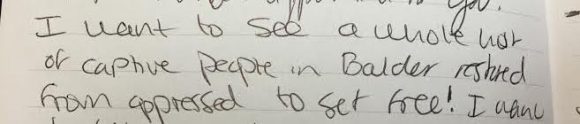 you.
I want to see a whole
of captive people in Balder restored
from oppressed to set free! I want